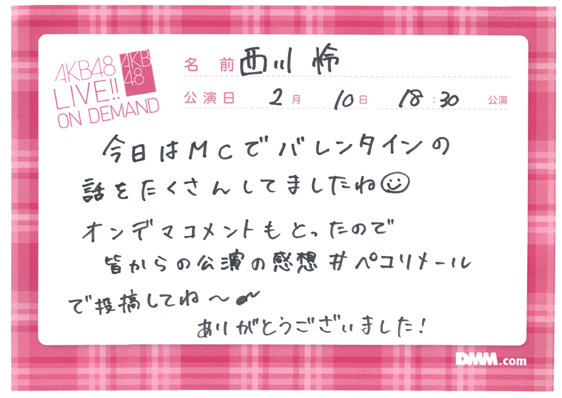 AKB48
LIVE!!
ON DEMAND
AKB
48
名前 西川 怜
公演日 2月 10日 18:30 公演
今日はMCでバレンタインの
話をたくさんしてましたね
オンデマコメントもとったので
皆からの公演の感想 #ペコリメール
で投稿してね〜
ありがとうございました!
DMM.com